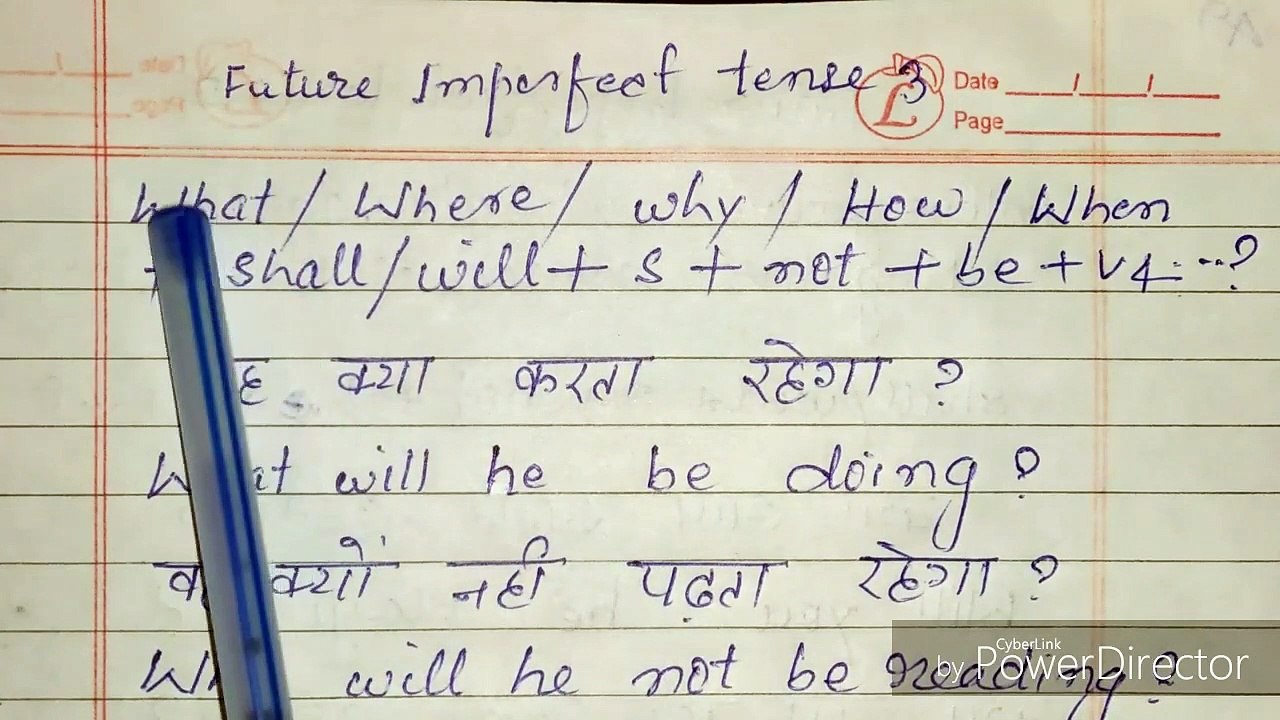 Future Imperfect tense 3
Date __/__/__
Page
What / Where / why / How / When
+ shall/will + S + not + be + V4...?
क्या करता रहेगा ?
What will he be doing ?
वह क्यों नहीं पढ़ता रहेगा ?
will he not be reading ?
CyberLink
by PowerDirector